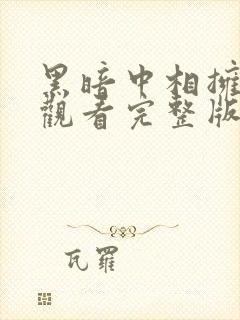 黑暗中相擁
觀看完整版
瓦羅